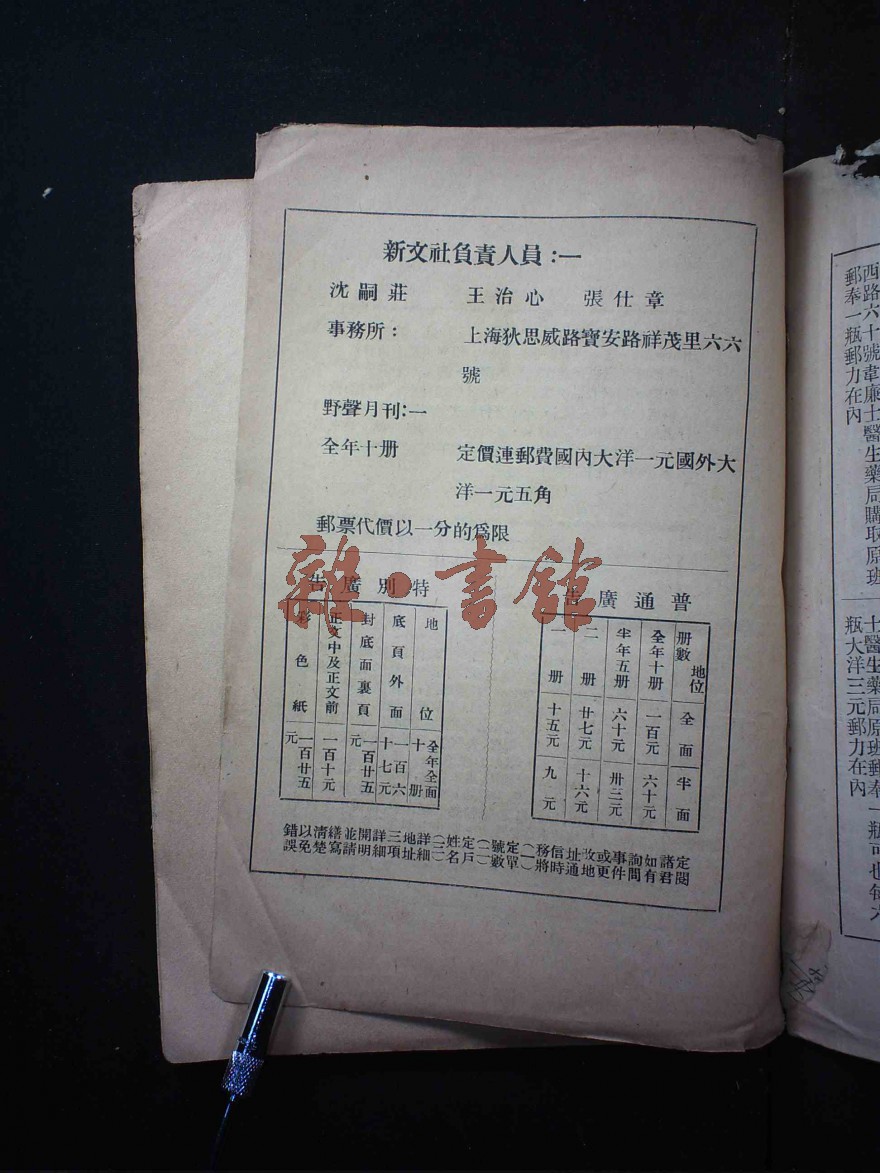 新文社負責人員：一
沈嗣莊 王治心 張仕章
事務所： 上海狄思威路寶安路祥茂里六六
號
野聲月刊：一
全年十册 定價連郵費國內大洋一元國外大
洋一元五角
郵票代價以一分的為限
普通廣告
地位 册數 全面 半面
全年十册 一百元 六十元
半年五册 六十元 卅三元
二册 廿七元 十六元
一册 十五元 九元
特別廣告
地位 全年全面十册
底頁外面 一百六十七元
封底面裏頁 一百廿五元
正文中及正文前 一百十元
彩色紙 一百廿五元
定閱諸君如有詢問事件或更改地址通信時務將（一）定單號數（二）定戶姓名（三）詳細地址三項詳細開明並請繕寫清楚以免錯誤
西路六十號韋廉士醫生藥局購取原班
郵奉一瓶郵力在內
士醫生藥局原班郵奉一瓶可也每六
瓶大洋三元郵力在內
雜·書館